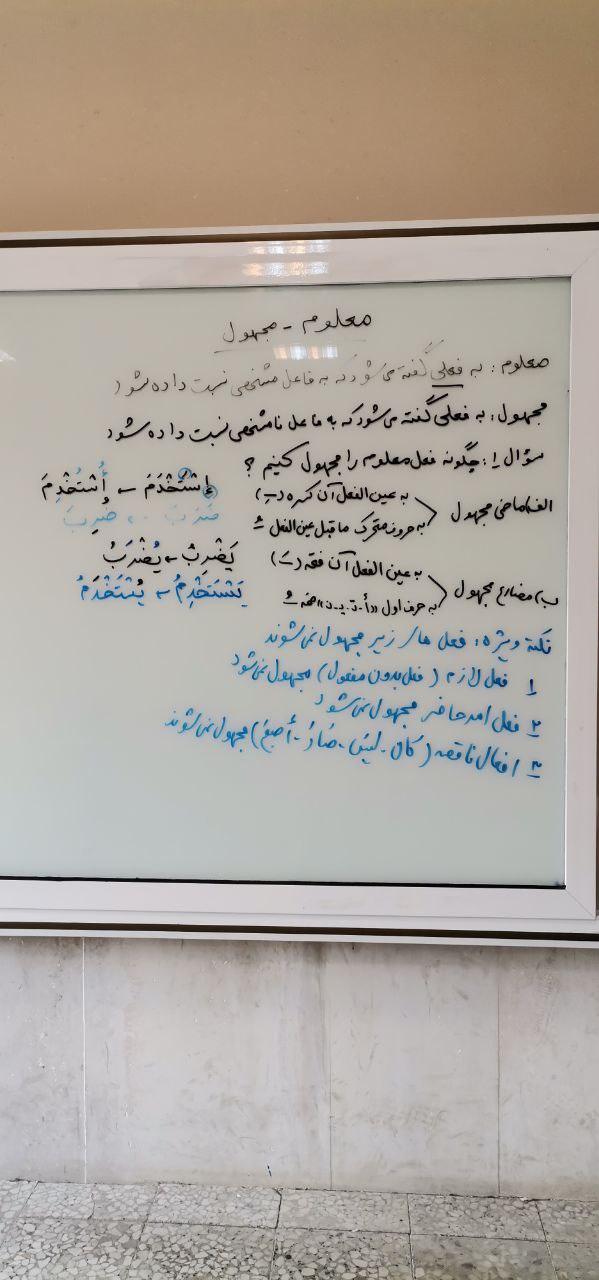 معلوم - مجهول
معلوم: به فعلی گفته می‌شود که به فاعل مشخصی نسبت داده شود
مجهول: به فعلی گفته می‌شود که به فاعل نامشخصی نسبت داده شود
سؤال ۱: چگونه فعل معلوم را مجهول کنیم؟
الف) ماضی مجهول
به عین الفعل آن کسره (ـِ) إِسْتَخْدَمَ ← أُسْتُخْدِمَ
به حروف متحرک ماقبل عین الفعل ـُ ضَرَبَ ← ضُرِبَ
ب) مضارع مجهول
به عین الفعل آن فتحه (ـَ) يَضْرِبُ ← يُضْرَبُ
به حرف اول «أ-ت-ی-ن» ضمه ـُ يَسْتَخْدِمُ ← يُسْتَخْدَمُ
نکته ویژه: فعل های زیر مجهول نمی‌شوند
۱ فعل لازم (فعل بدون مفعول) مجهول نمی‌شود
۲ فعل امر حاضر مجهول نمی‌شود
۳ افعال ناقصه (کان - لیس - صار - أصبح) مجهول نمی‌شوند